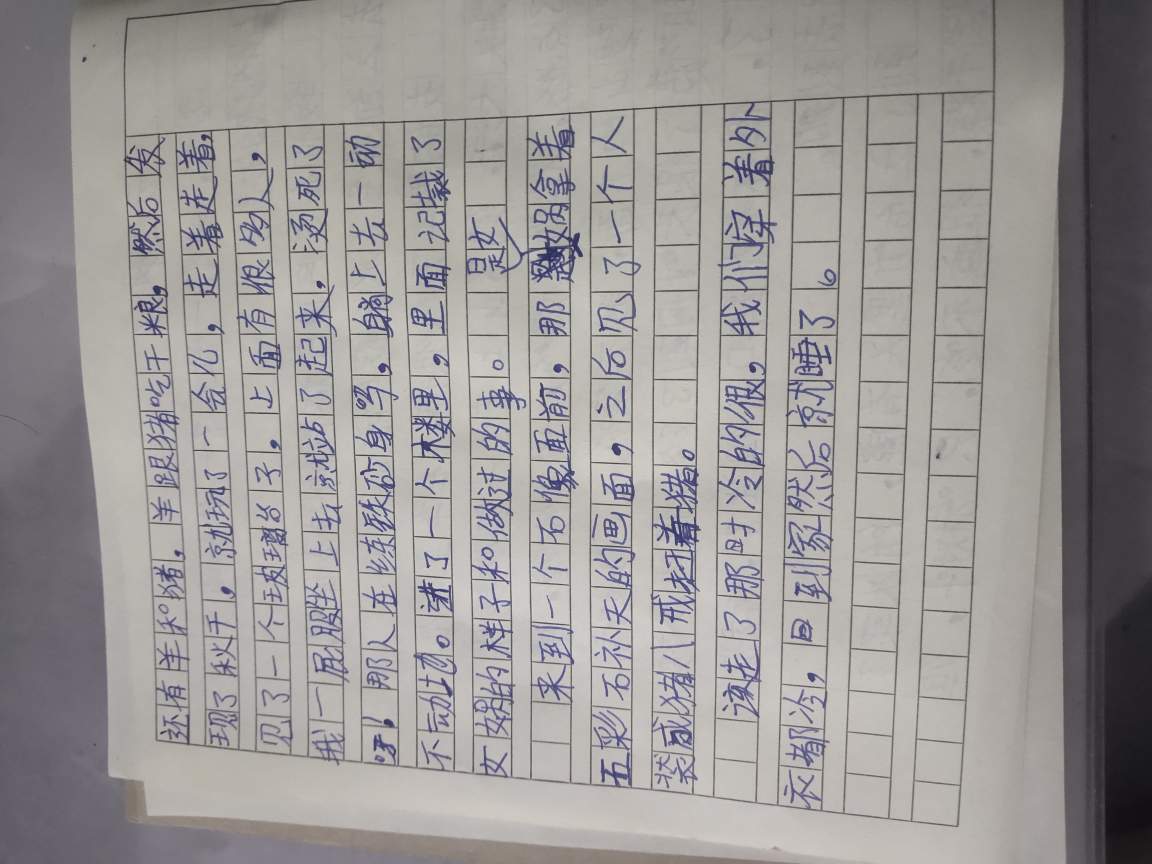 还有羊和猪。羊跟猪吃干粮，然后发
现了秋千。就玩了一会儿，走着走着，
见了一个玻璃台子。上面有很多人，
我一屁股坐上去就站了起来，烫死了
呀！那人在练铁砂身吗。躺上去一动
不动地。进了一个楼里，里面记载了
女娲的样子和做过的事。
来到一个石像面前，那是女娲拿着
五彩石补天的画面，之后见了一个人
装成猪八戒扫着猪。
该走了那时冷的很。我们穿着外
衣都冷，回到家然后就睡了。